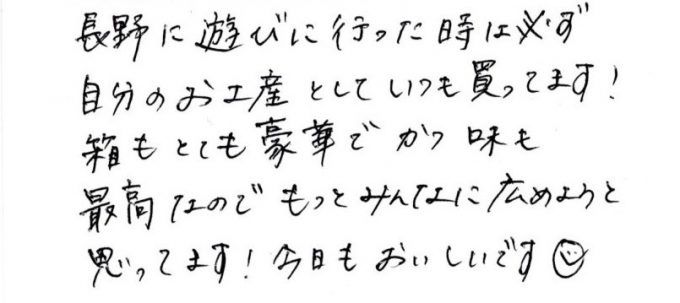 長野に遊びに行った時は必ず
自分のお土産としていつも買ってます!
箱もとても豪華でかつ味も
最高なのでもっとみんなに広めようと
思ってます!今日もおいしいです☺